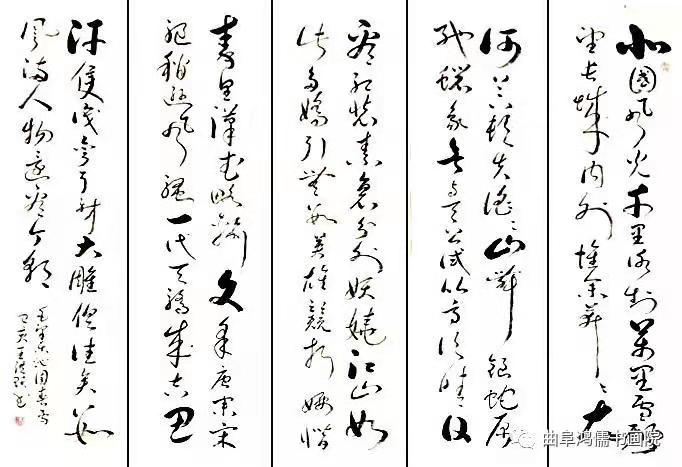 北國风光千里冰封万里雪飘
望长城内外惟余莽〻大
河上下顿失滔〻山舞银蛇原
驰蜡象欲与天公试比高须晴日
看红装素裹分外妖娆江山如
此多娇引无数英雄竞折腰惜
秦皇汉武略输文采唐宗宋
祖稍逊风骚一代天骄成吉思
汗只识弯弓射大雕俱往矣数
风流人物还看今朝
毛泽东沁园春雪
曲阜鸿儒书画院